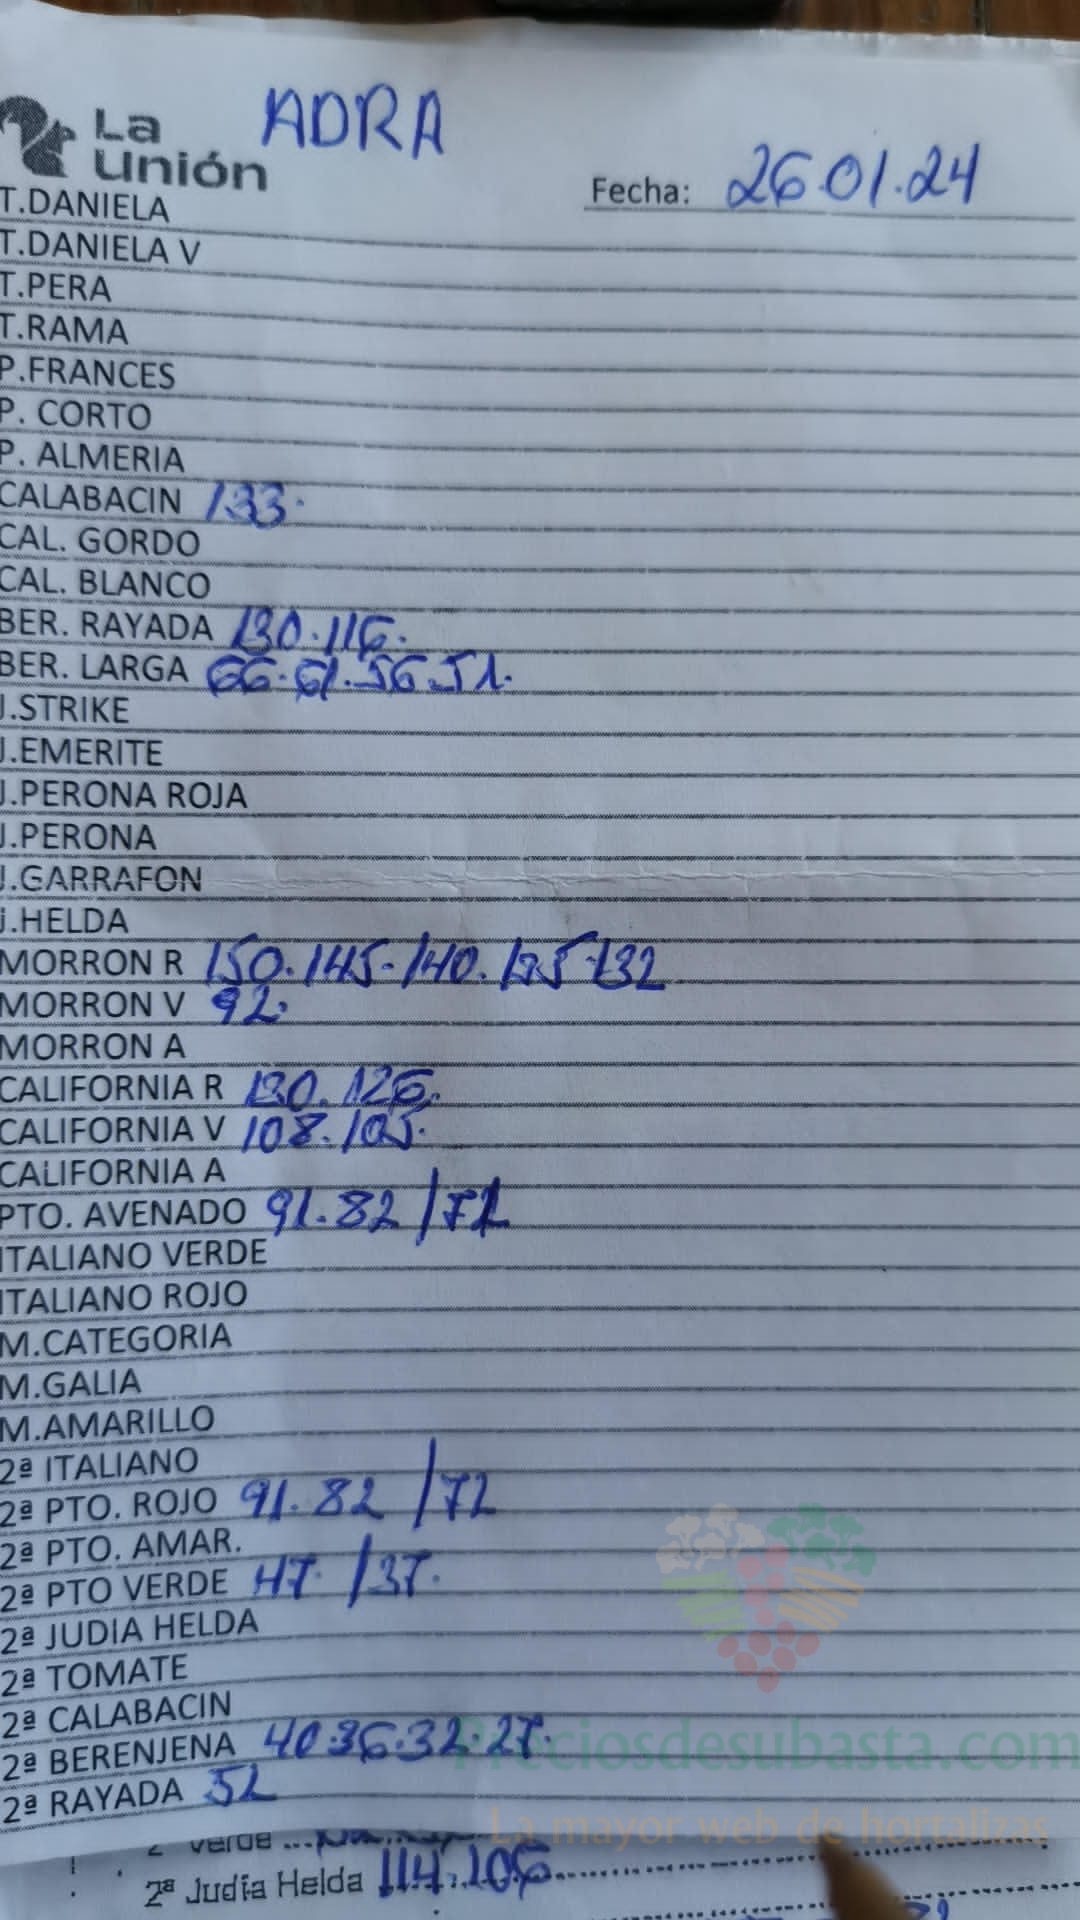 La Unión ADRA
Fecha: 26.01.24
T.DANIELA
T.DANIELA V
T.PERA
T.RAMA
P.FRANCES
P. CORTO
P. ALMERIA
CALABACIN 133.
CAL. GORDO
CAL. BLANCO
BER. RAYADA 130.116.
BER. LARGA 66.61.56.51.
J.STRIKE
J.EMERITE
J.PERONA ROJA
J.PERONA
J.GARRAFON
j.HELDA
MORRON R 150.145.140.135.132
MORRON V 92.
MORRON A
CALIFORNIA R 130.126.
CALIFORNIA V 108.105.
CALIFORNIA A
PTO. AVENADO 91.82/71
ITALIANO VERDE
ITALIANO ROJO
M.CATEGORIA
M.GALIA
M.AMARILLO
2ª ITALIANO
2ª PTO. ROJO 91.82/72
2ª PTO. AMAR.
2ª PTO VERDE 47./37.
2ª JUDIA HELDA
2ª TOMATE
2ª CALABACIN
2ª BERENJENA 40.36.32.27.
2ª RAYADA 52
Preciosdesubasta.com
La mayor web de hortalizas
2ª Judía Helda 114.106